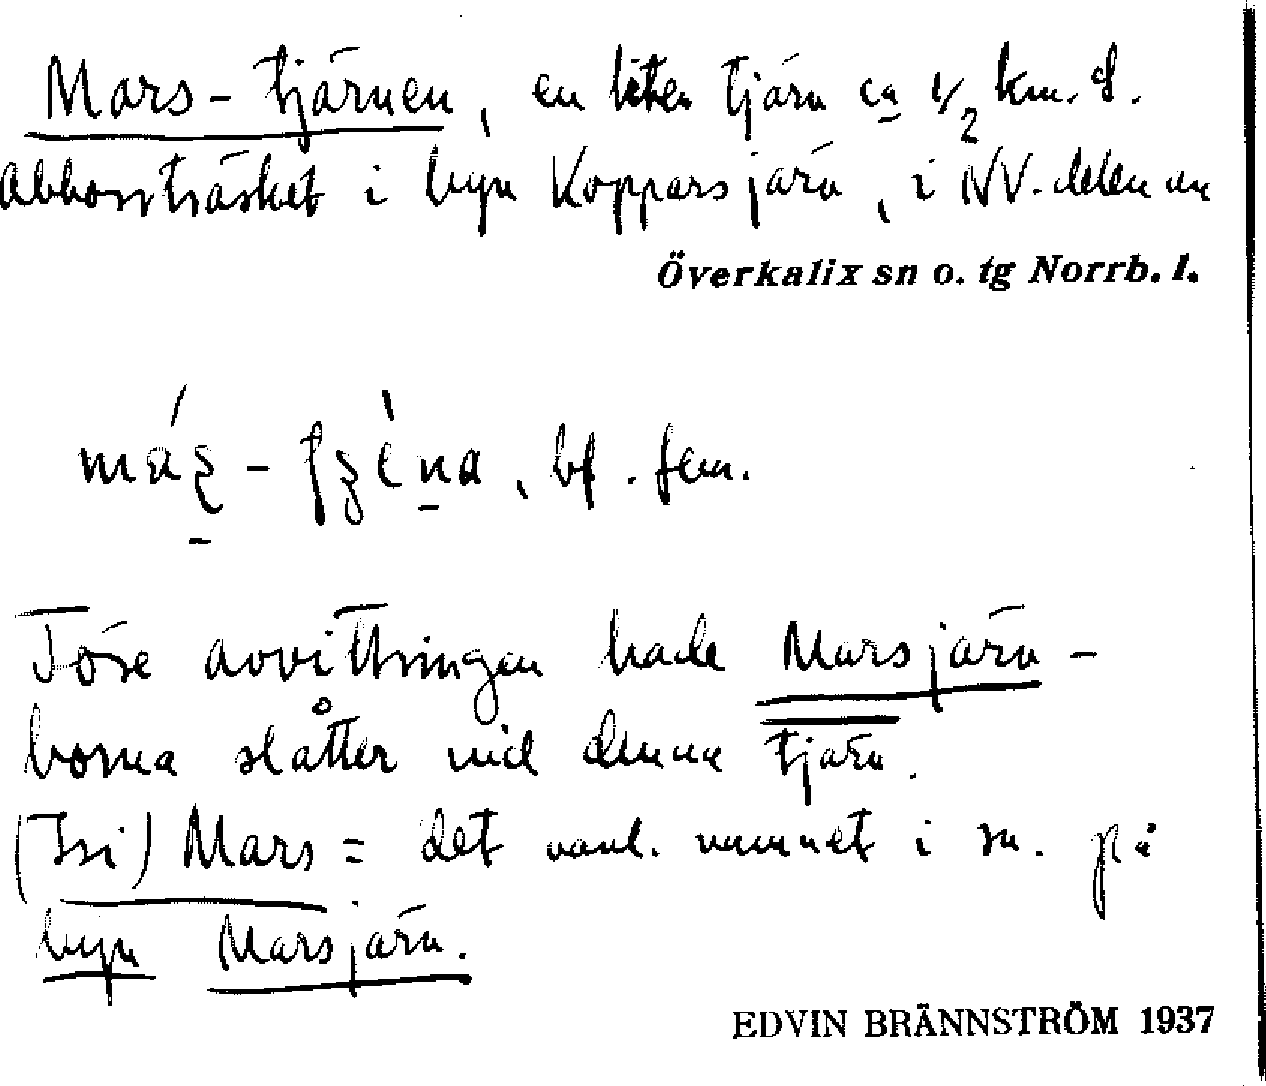 Mars-tjärnen, en liten tjärn ca 1/2 km. S.
Abborrträsket i byn Kopparsjärn, i NV. delen av
Överkalix sn o. tg Norrb. l.
bf. fem.
Före avvittringen hade Marsjärn-
borna slåtter vid denna tjärn.
(Isi) Mars = det vanl. namnet i sn. på
byn Marsjärn.
EDVIN BRÄNNSTRÖM 1937